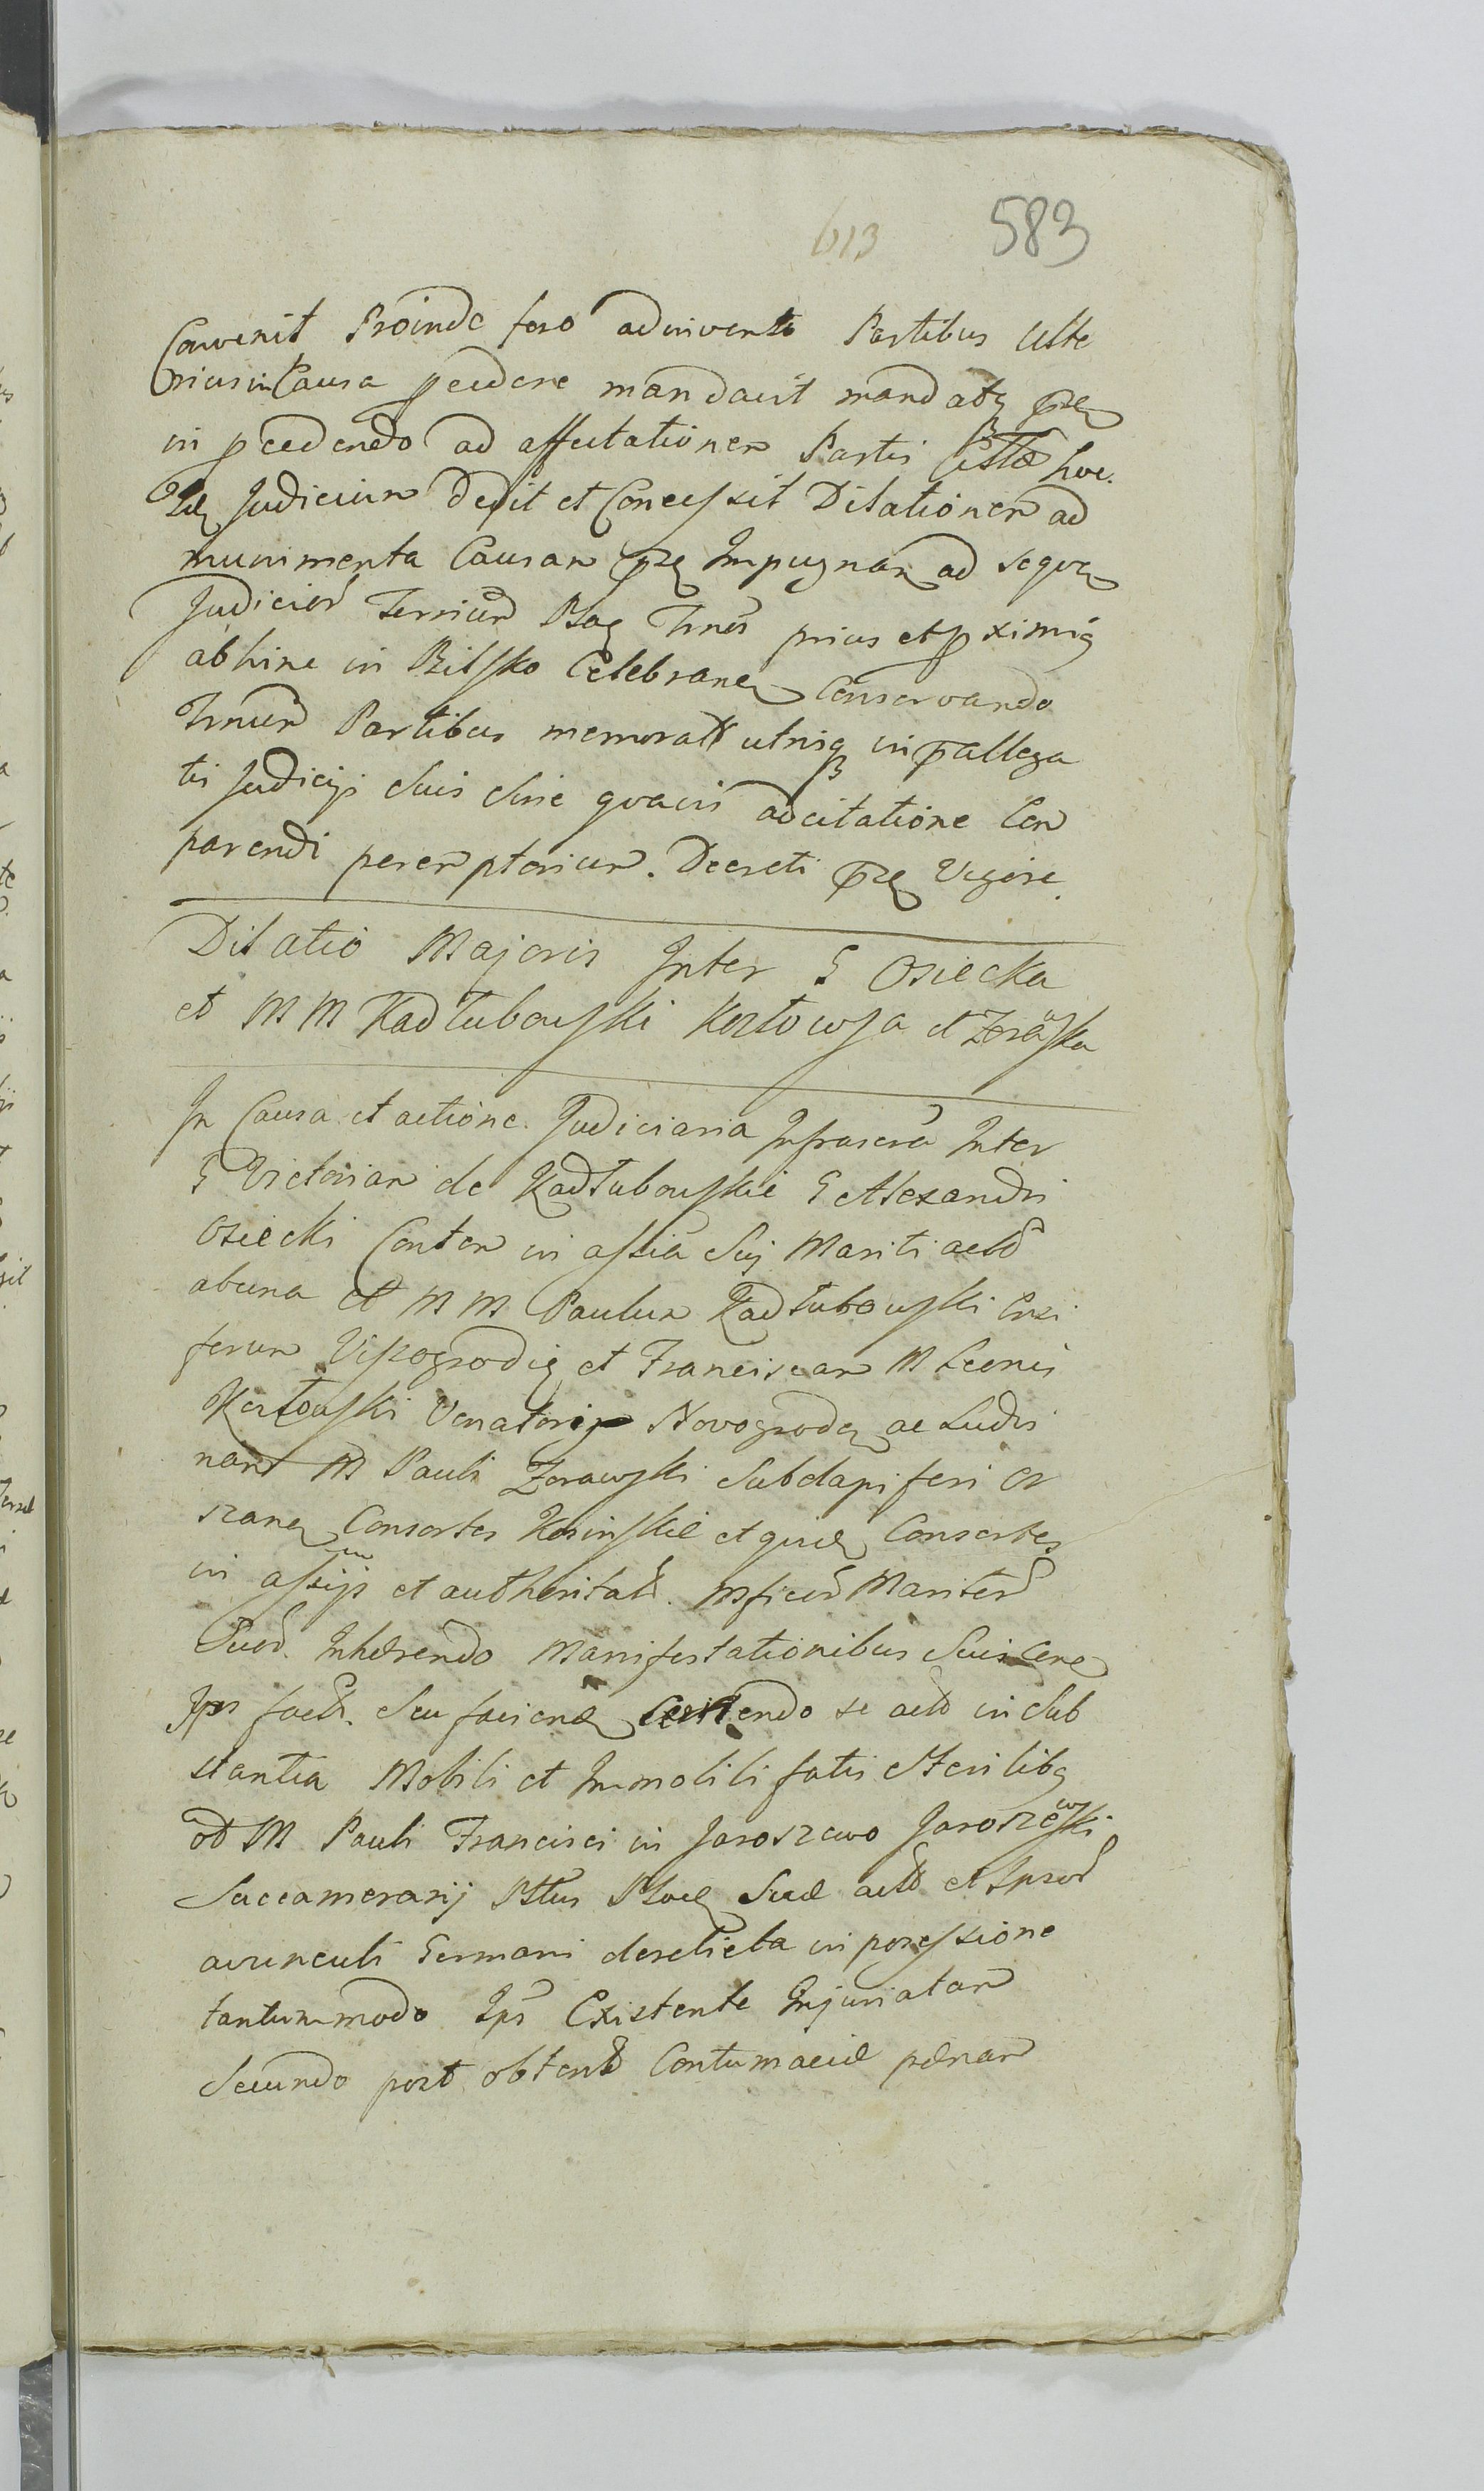 613 583
Convenit Proinde foro adinvento Partibus Ulte
rius in Causa pcedere mandavit mandatq
in pcedendo ad affectationem Partis Citatæ hoc
Judicium Dedit et Concessit Dilationem ad
munimenta Causam Impugnan ad seqva
Judicior Terrium Ploc Trnos prius et pximiq
abhinc in Bilsko Celebrane Conservando
Trnum Partibus memorat utrisq in pallega
tis Judicijs Suis Sine qvavis adcitatione Com
parendi peremptorium. Decreti Vigore.
Dilatio Majoris Inter G Osiecka
et M M Kadłubowski Kozłowsa et Zorawska
In Causa et actione Judiciaria Infrascra Inter
G Victoriam de Kadłubowskie G Alexandri
Osiecki Contem in assia Sui Mariti act
ab una et M M Paulum Kadłubowski Ensi
ferum Vissogrodiæ et Franciscam M Leonis
Kozłowski Venatoris Novogrode ac Ludvi
nam M Pauli Zorawski Subdapiferi Or
szane Consortes Kosinskie et qvide Consortes
in assijs et authoritat. Mficor Maritor
Suor. Inhærendo Manifestationibus Suis Cone
Ips fact. Seu faciend Sentiendo se act in Sub
stantia Mobili et Immobili fatis Sterilibq
od M Pauli Francisci in Jaroszewo Jaroszewski
Succamerarij Pttus Ploce Suæ act et Ipsor
avunculi Germani derelicta in possessione
tantummodo Ips Existente Injuriatam
Secundo post obtent Contumaciæ pænam